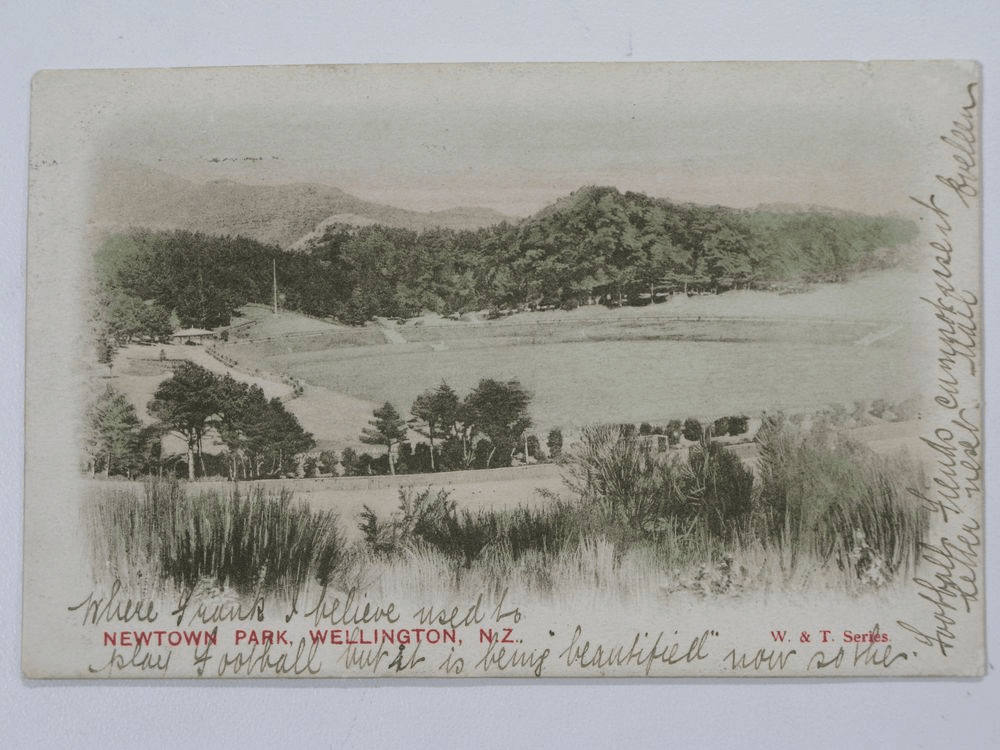 Where Frank I believe used to
NEWTOWN PARK, WELLINGTON, N.Z.
W. & T. Series.
play Football but it is being "beautified" now so the
footballs